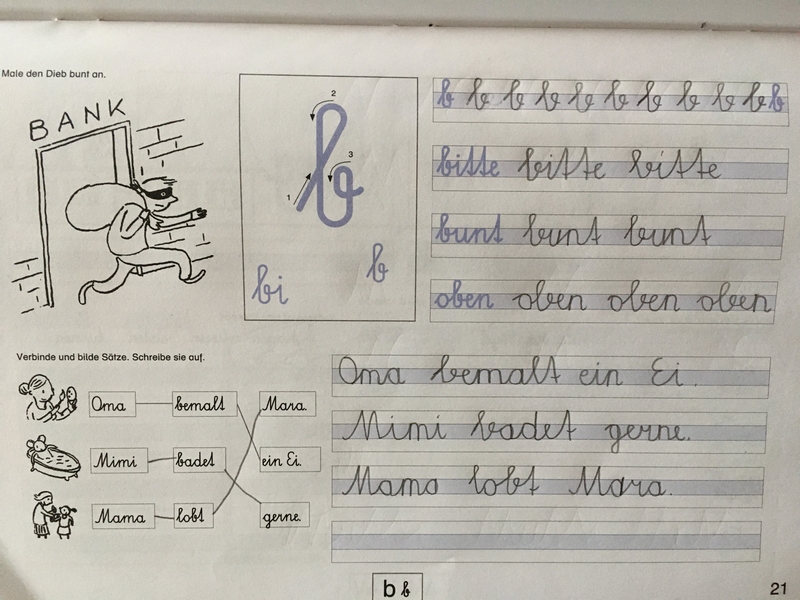 Male den Dieb bunt an.
BANK
1
2
3
bi
b
b b b b b b b b b b b
bitte bitte bitte
bunt bunt bunt
oben oben oben oben
Verbinde und bilde Sätze. Schreibe sie auf.
Oma bemalt Mara.
Mimi badet ein Ei.
Mama lobt gerne.
Oma bemalt ein Ei.
Mimi badet gerne.
Mama lobt Mara.
b b
21